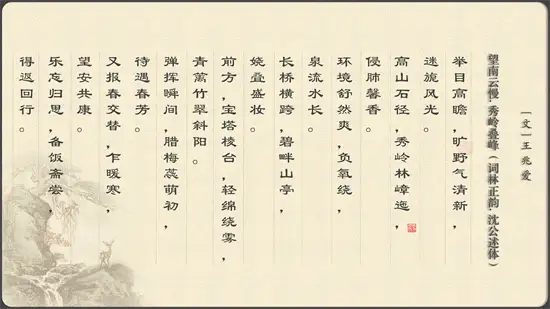 望南云慢·秀岭叠峰（词林正韵 沈公述体）
（文）王兆爱
举目高瞻，旷野气清新，
迷旋风光。
高山石径，秀岭林嶂迤，
侵肺馨香。
环境舒然爽，负氧绕，
泉流水长。
长桥横跨，碧畔山亭，
娆叠盛妆。
前方，宝塔楼台，轻绵绕雾，
青篱竹翠斜阳。
弹挥瞬间，腊梅蕊萌初，
待遇春芳。
又报春交替，乍暖寒，
望安共康。
乐忘归思，备饭斋尝，
得返回行。